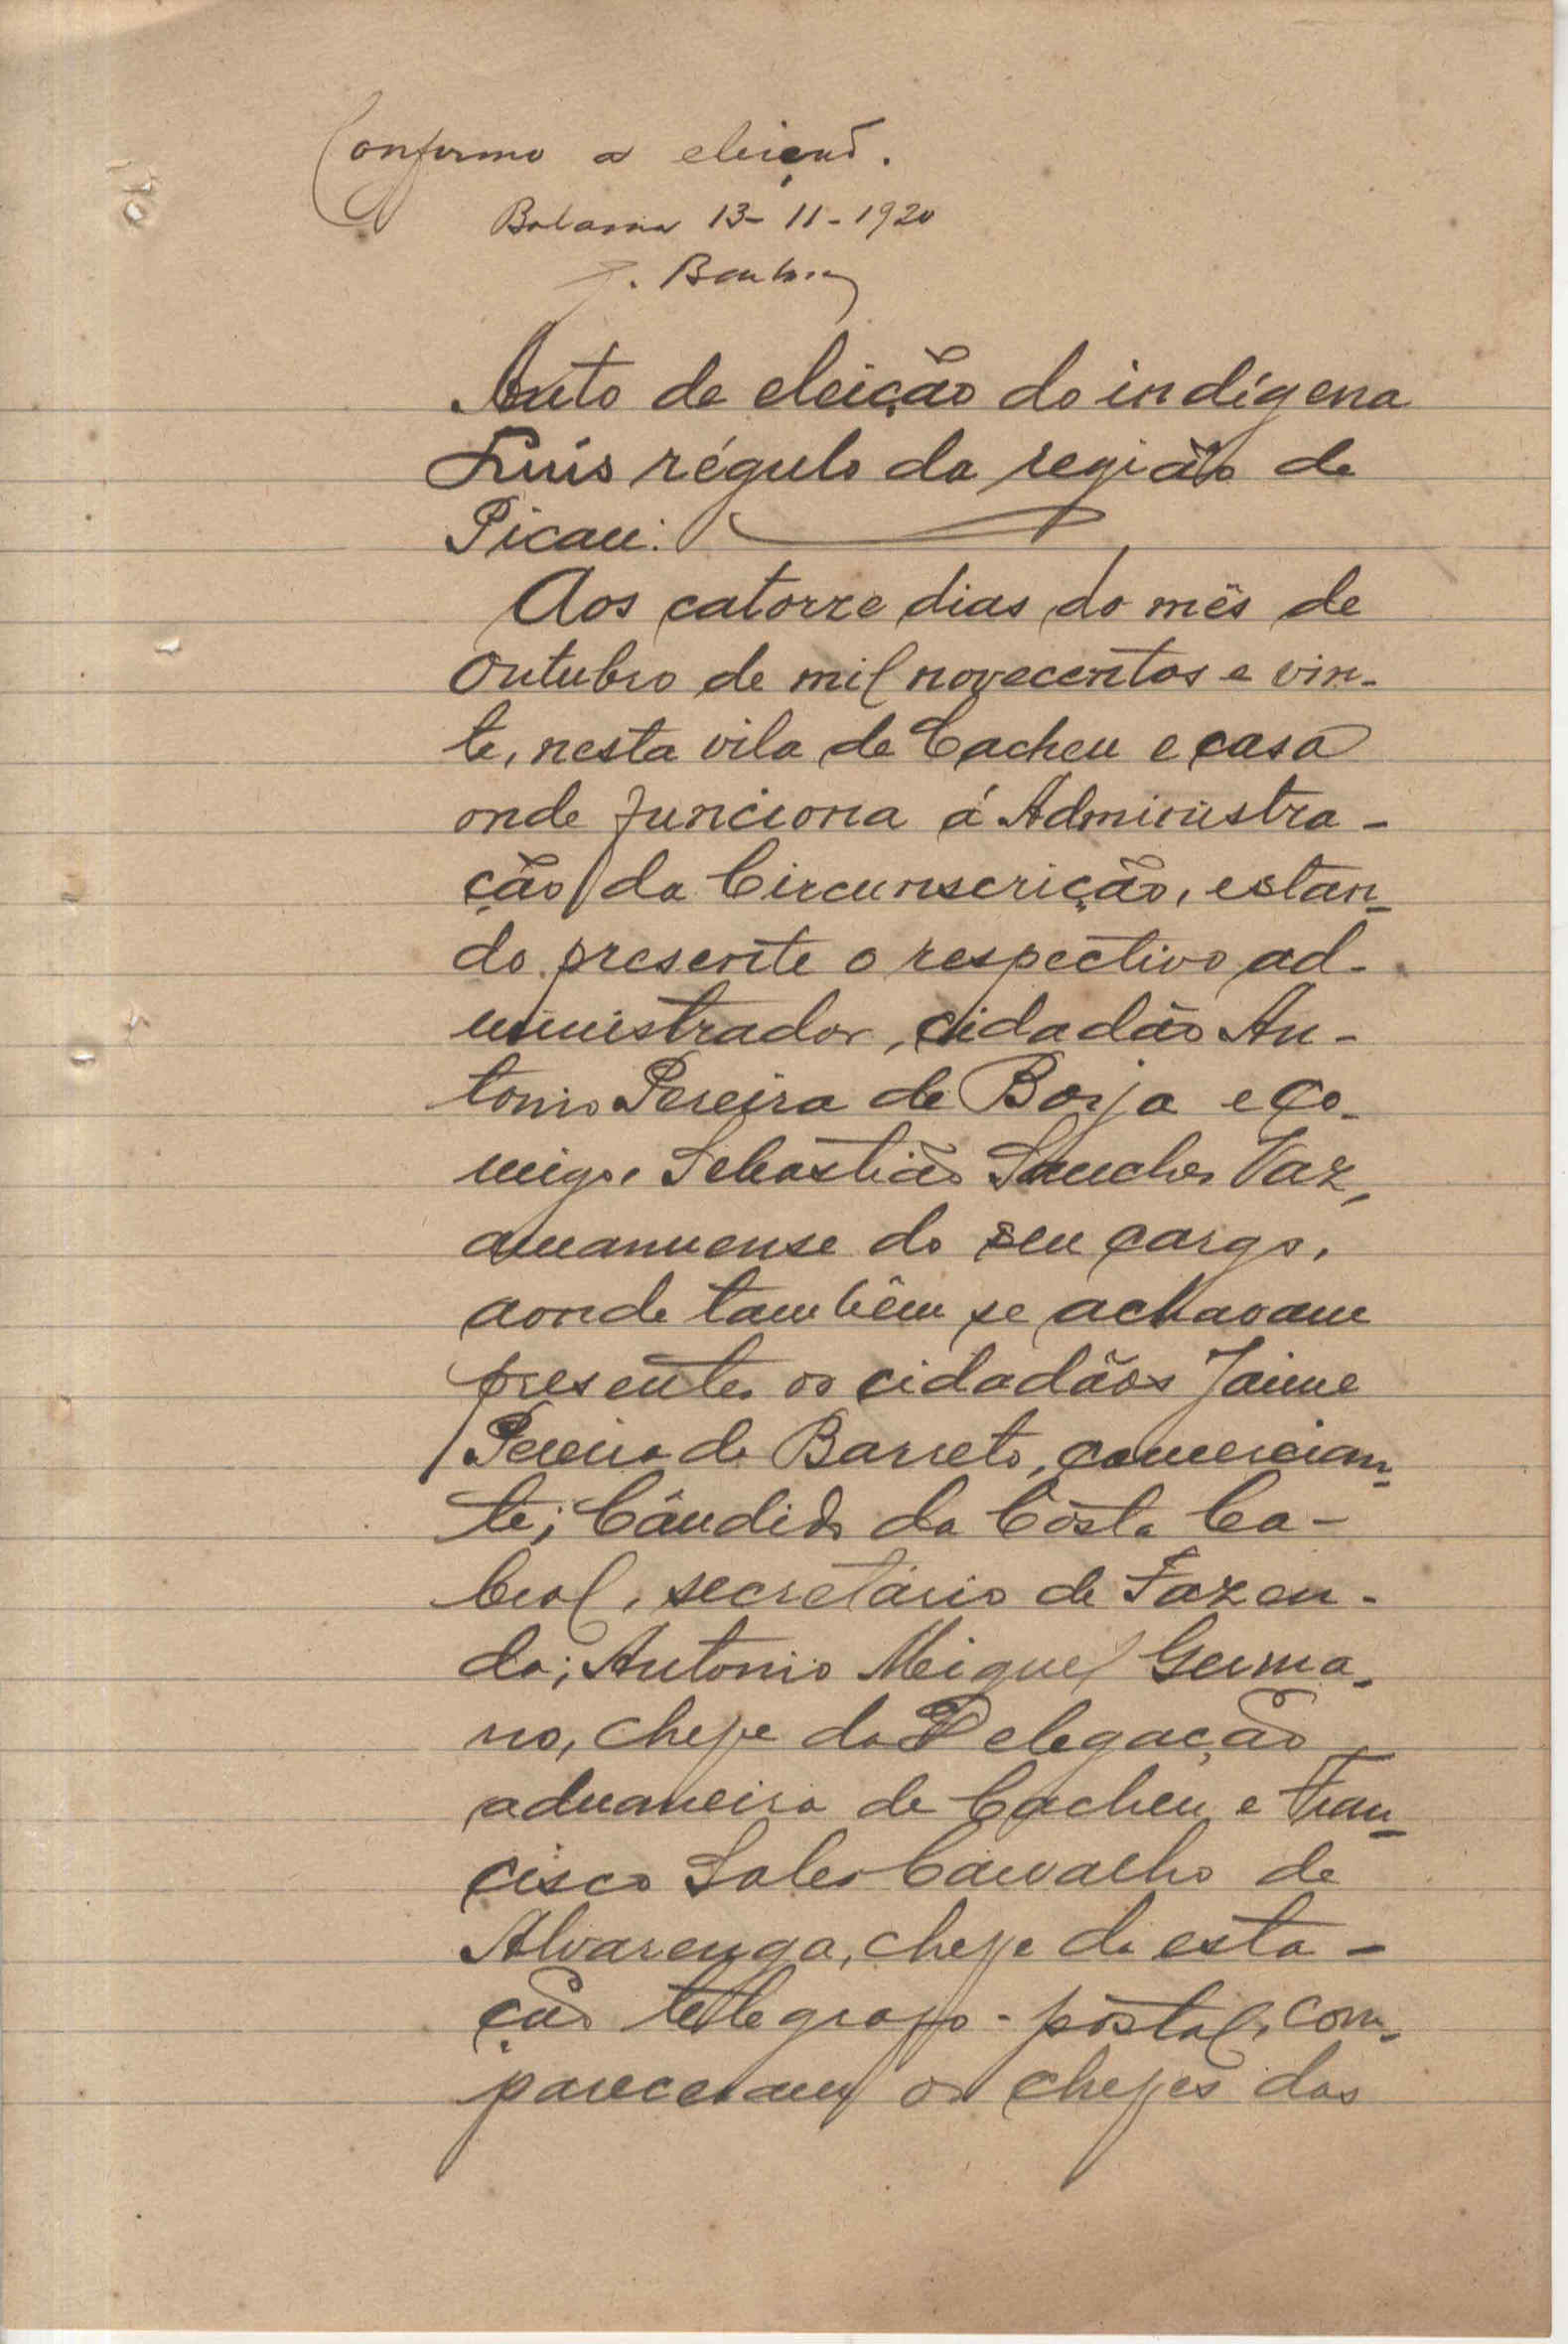 Confirmo a eleição.
Bolama 13-11-1920
Auto de eleição do indígena
Luís régulo da região de
Picau:
Aos catorze dias do mês de
Outubro de mil novecentos e vin-
te, nesta vila de Cacheu e casa
onde funciona á Administra-
ção da Circunscrição, estan-
do presente o respectivo ad-
ministrador, cidadão An-
tonio Pereira de Borja e co-
migo, Sebastião Sanches Vaz,
amanuense do seu cargo,
aonde tambêm se achavam
presentes os cidadãos Jaime
Pereira de Barreto, comercian-
te; Cândido da Costa Ca-
bral, secretário de Fazen-
da; Antonio Miguel Germa-
no, chefe da Delegação
aduaneira de Cacheu e Fran-
cisco Sales Carvalho de
Alvarenga, chefe da esta-
ção telegrafo-postal, com-
pareceram os chefes das